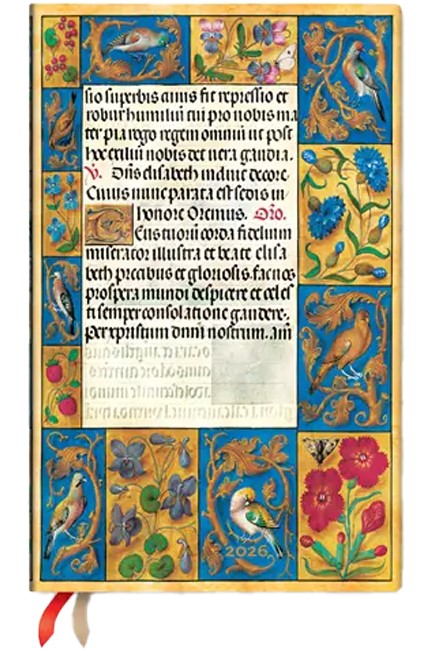 sio superbis cuius fit repressio et
robur humiliū tui pro nobis ma
ter pia rogo regem omniū ut post
hoc exiliū nobis det vera gaudia.
V. Dn̄s elisabeth induit decore.
Cuius nunc parata est sedis in
honore Oremus. Or̄o.
Deus tuorū corda fidelium
miserator illustra et beate elisa
beth precibus et gloriosis. fac nos
prospera mundi despicere et celes
ti semper consolatione gaudere.
Per xpistum dnm̄ nostrum. am̄
2026